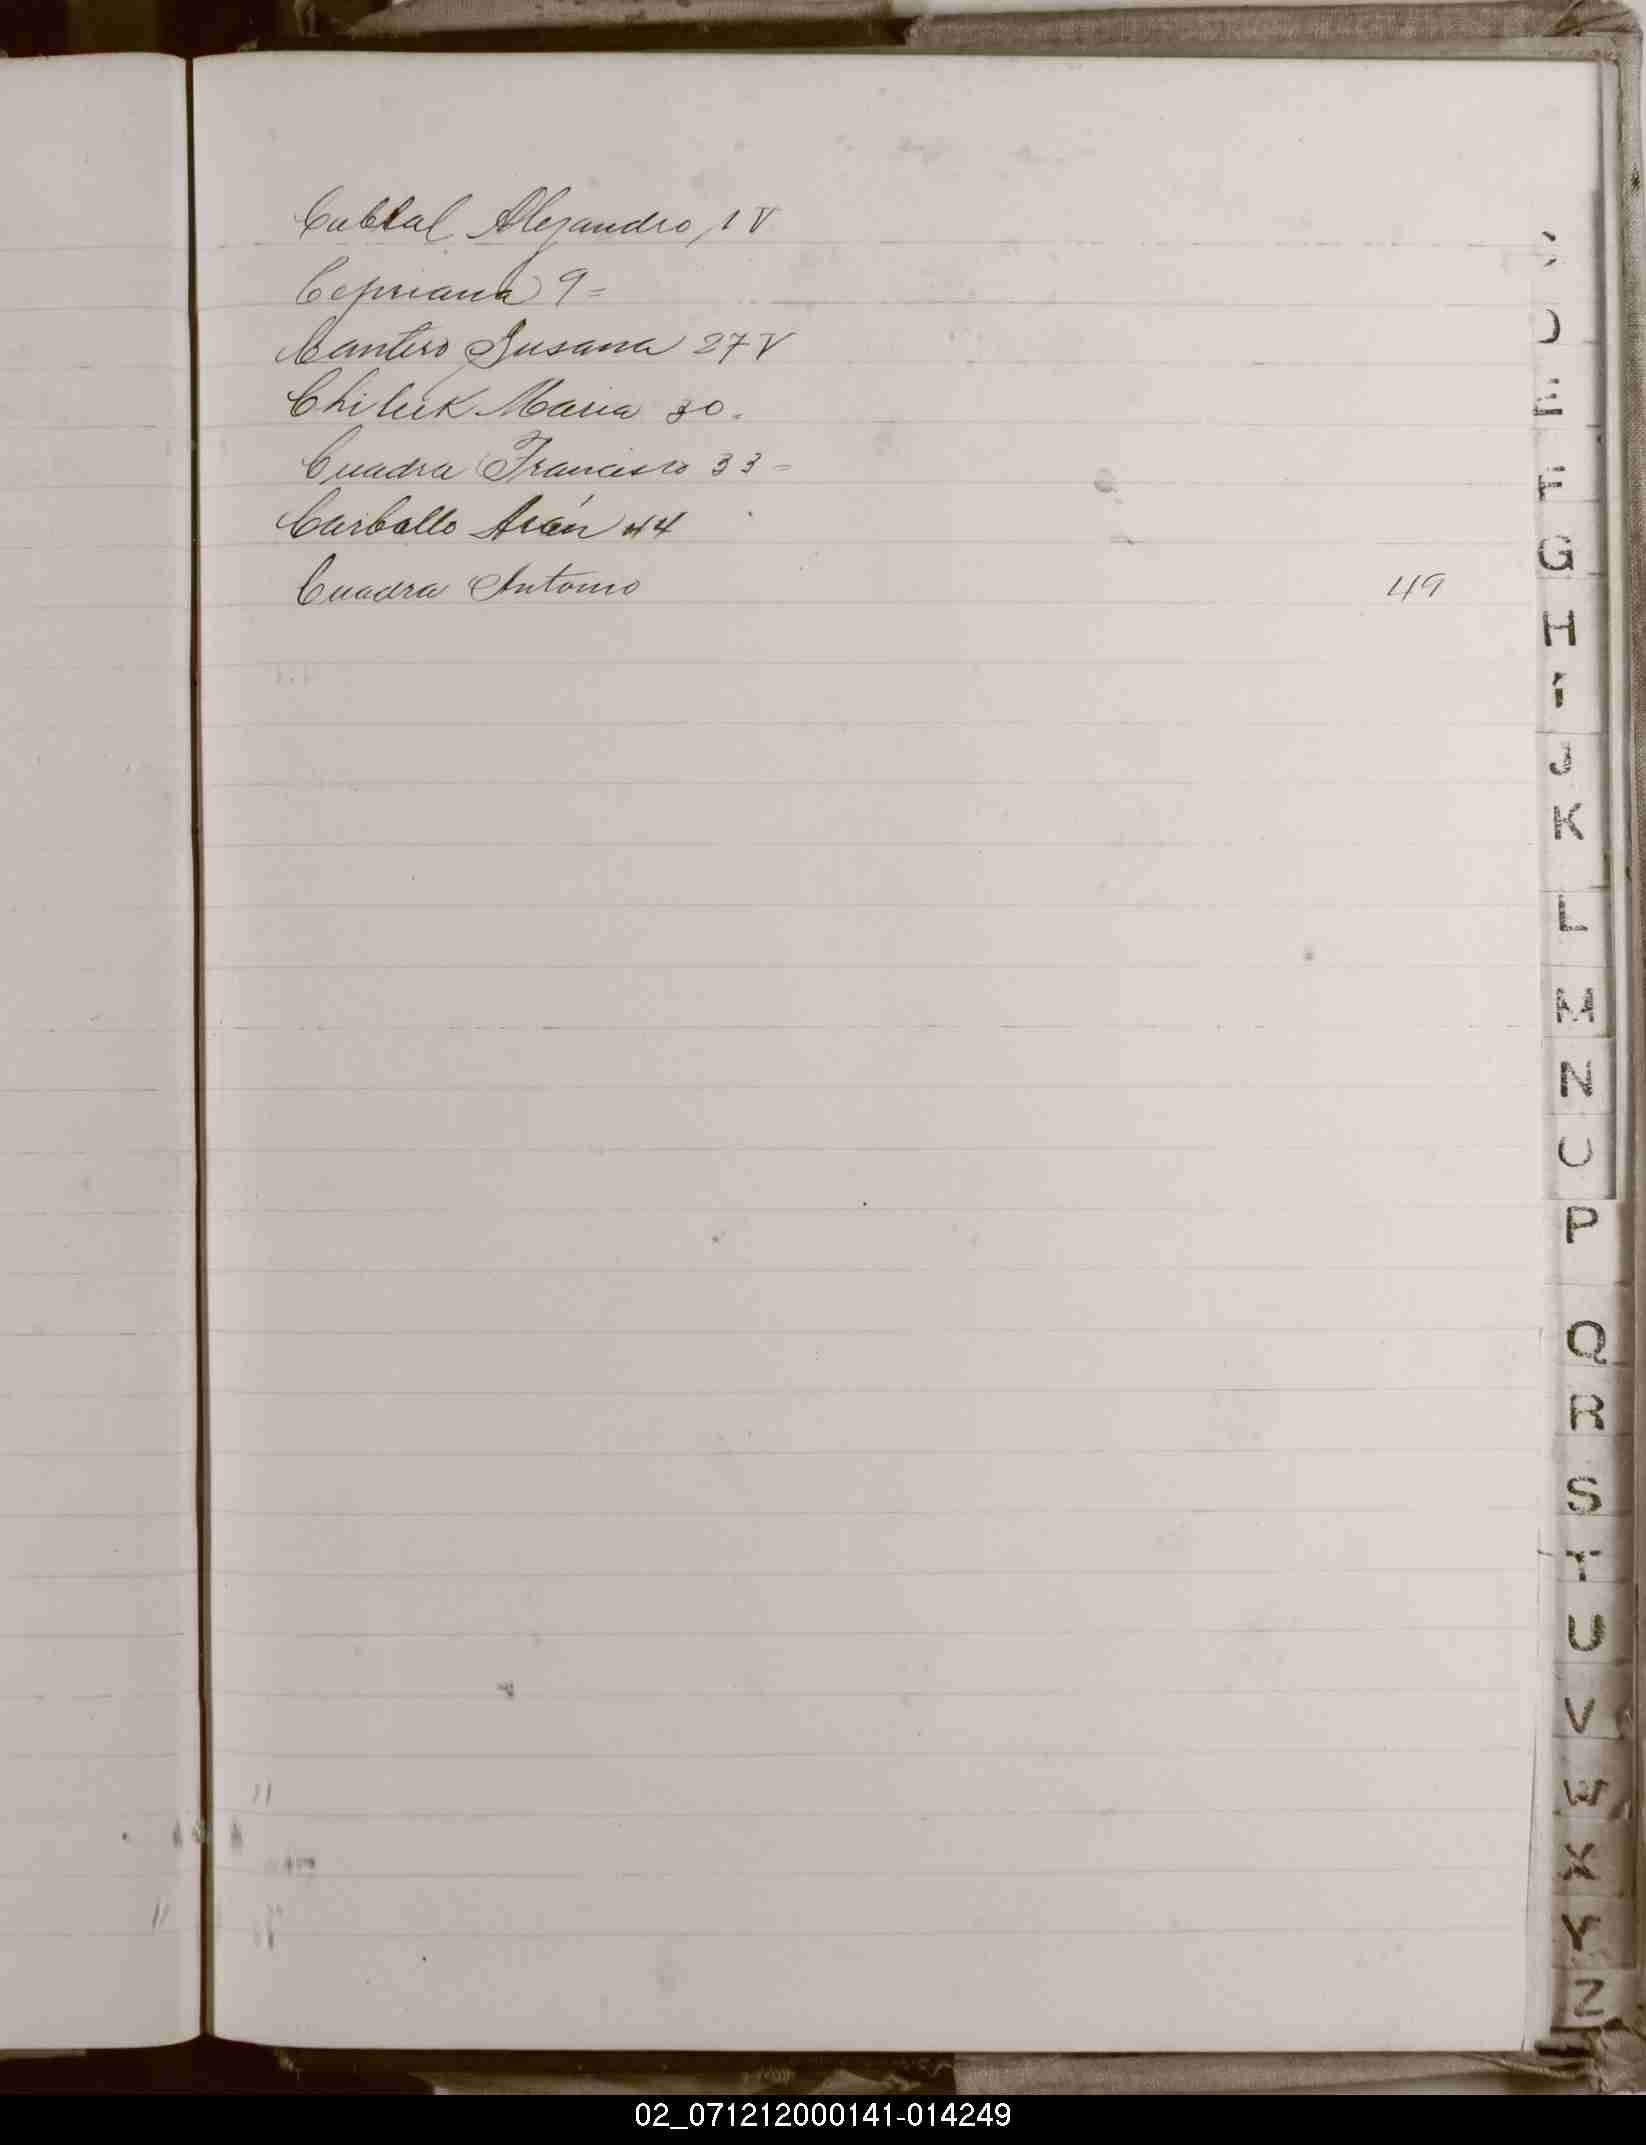 Cabral Alejandro, 1 V
Cepriana 9 =
Cantero Susana 27 V
Maria 30.
Cuadra Francisco 33 =
Carballo Arán 44
Cuadra Antonio 49
D
E
F
G
H
I
J
K
L
M
N
O
P
Q
R
S
T
U
V
W
X
Y
Z
02_071212000141-014249